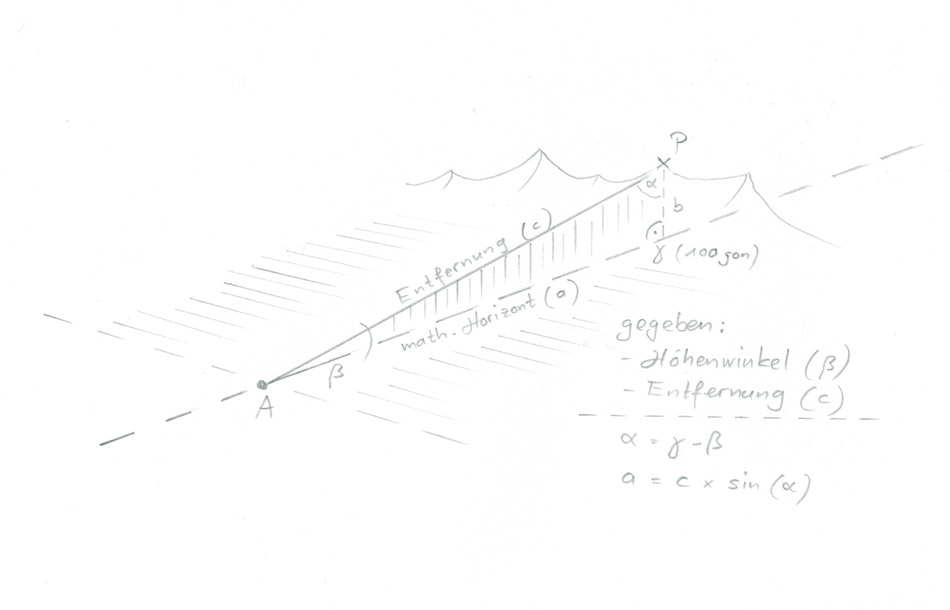 P
α
b
Entfernung (c)
γ (100 gon)
math. Horizont (a)
β
A
gegeben:
- Höhenwinkel (β)
- Entfernung (c)
α = γ - β
a = c × sin (α)